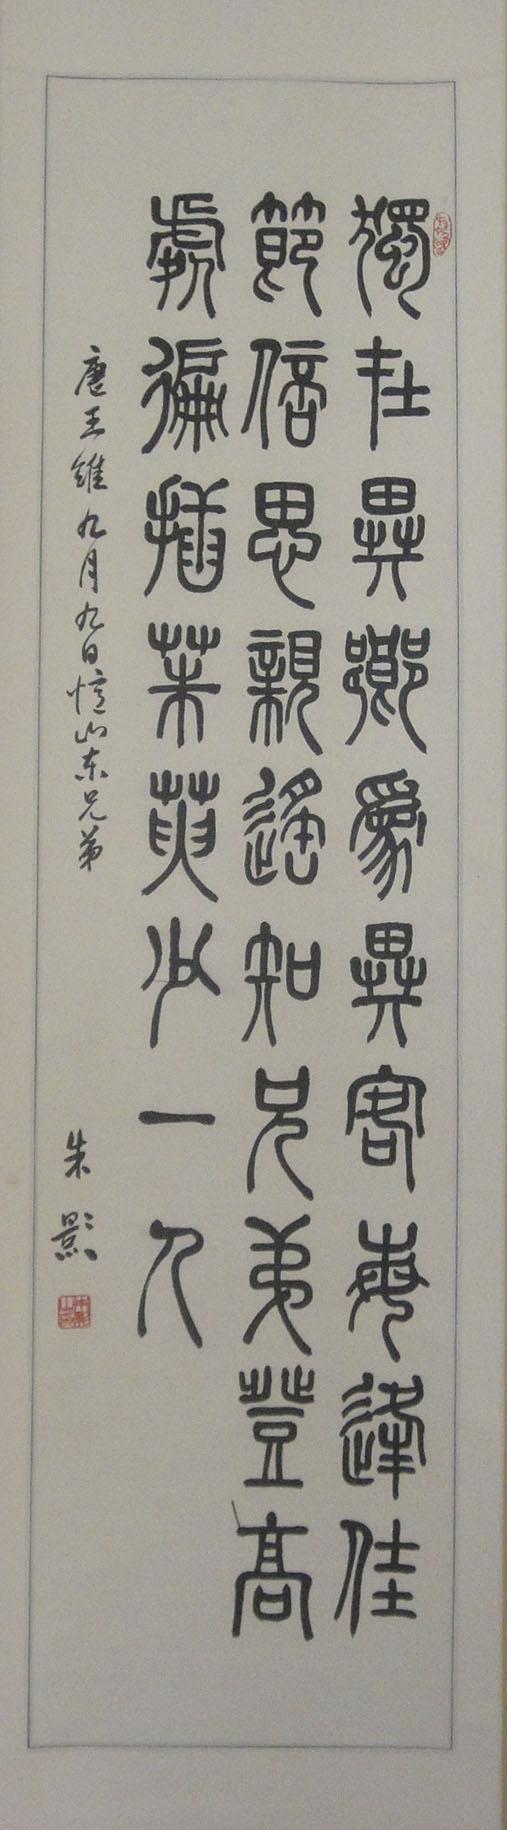 獨在異鄉為異客每逢佳
節倍思親遙知兄弟登高
處徧插茱萸少一人
唐王維九月九日憶山東兄弟
朱影